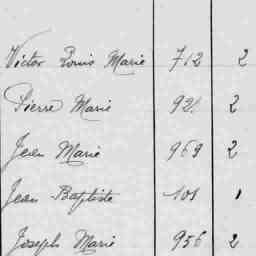 Victor Louis Marie 712 2
Pierre Marie 921 2
Jean Marie 969 2
Jean Baptiste 101 1
Joseph Marie 956 2